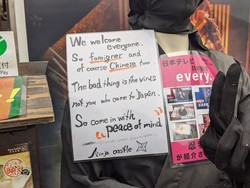 We welcome
everyone.
So foreigner and
of course Chinese too
The bad thing is the virus
not you who come to Japan.
So come in with
peace of mind
Ninja castle
日本テレビ
every.
が紹介さ